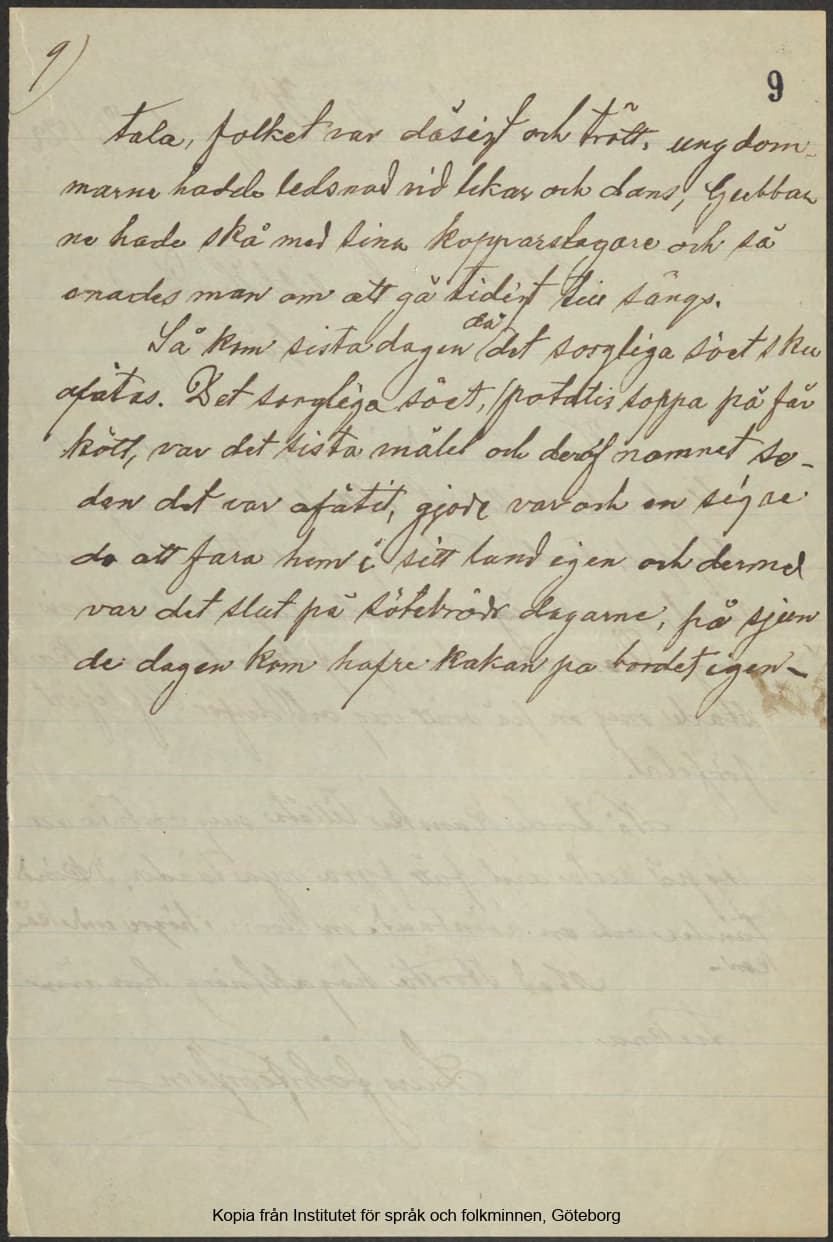 9)
9
tala, folket var dåsigt och trött, ungdom-
marne hadde ledsnad vid lekar och dans, Gubbar
ne hade skå med sina kopparslagare och så
enades man om att gå tidigt till sängs.
Så kom sista dagen då det sorgliga sået sku
afätas. Det sorgliga sået, (potatis soppa på får
kött, var det sista målet och deraf namnet se-
dan det var afätit, gjorde var och en sig re
do att fara hem i sitt land igen och dermed
var det slut på sötebröds dagarne, på sjun
de dagen kom hafre kakan pa bordet igen-
Kopia från Institutet för språk och folkminnen, Göteborg